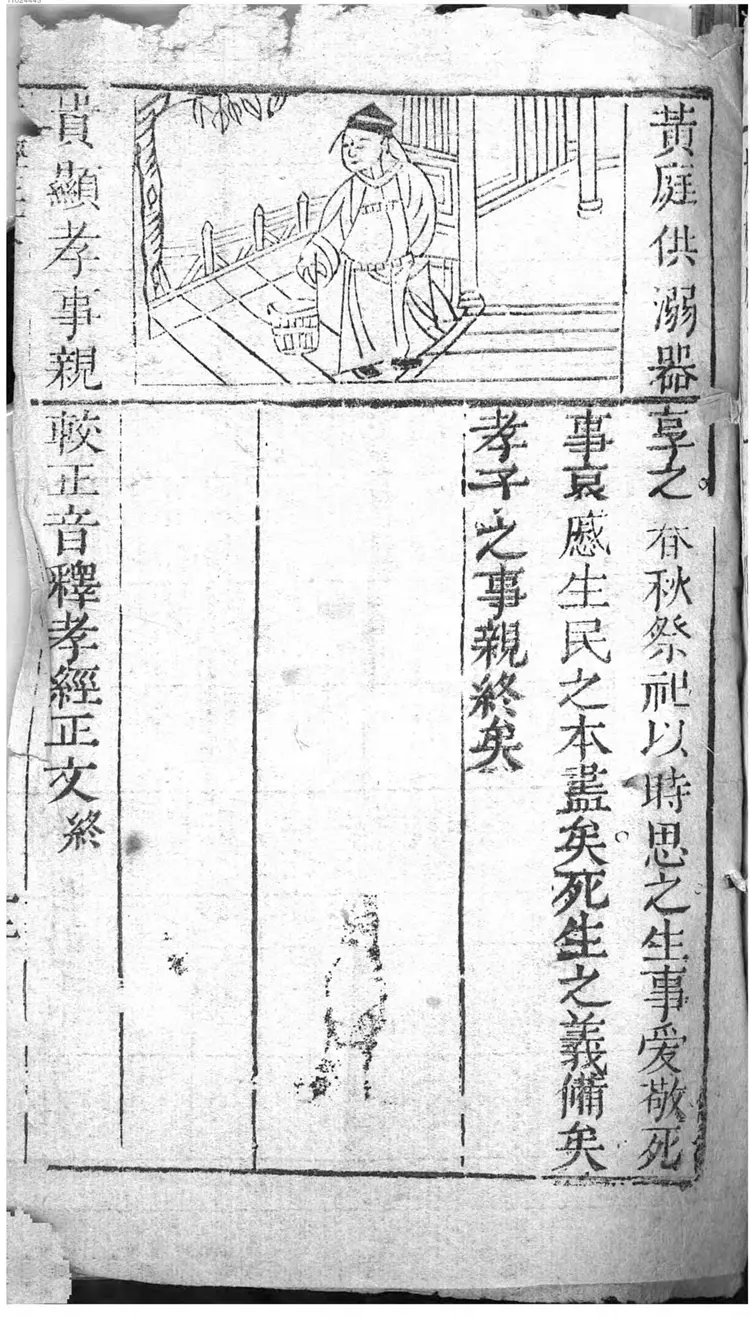 黃庭供溺器
貴顯孝事親
享之。春秋祭祀以時思之生事愛敬死
事哀慼生民之本盡矣。死生之義備矣
孝子之事親終矣
較正音釋孝經正文終